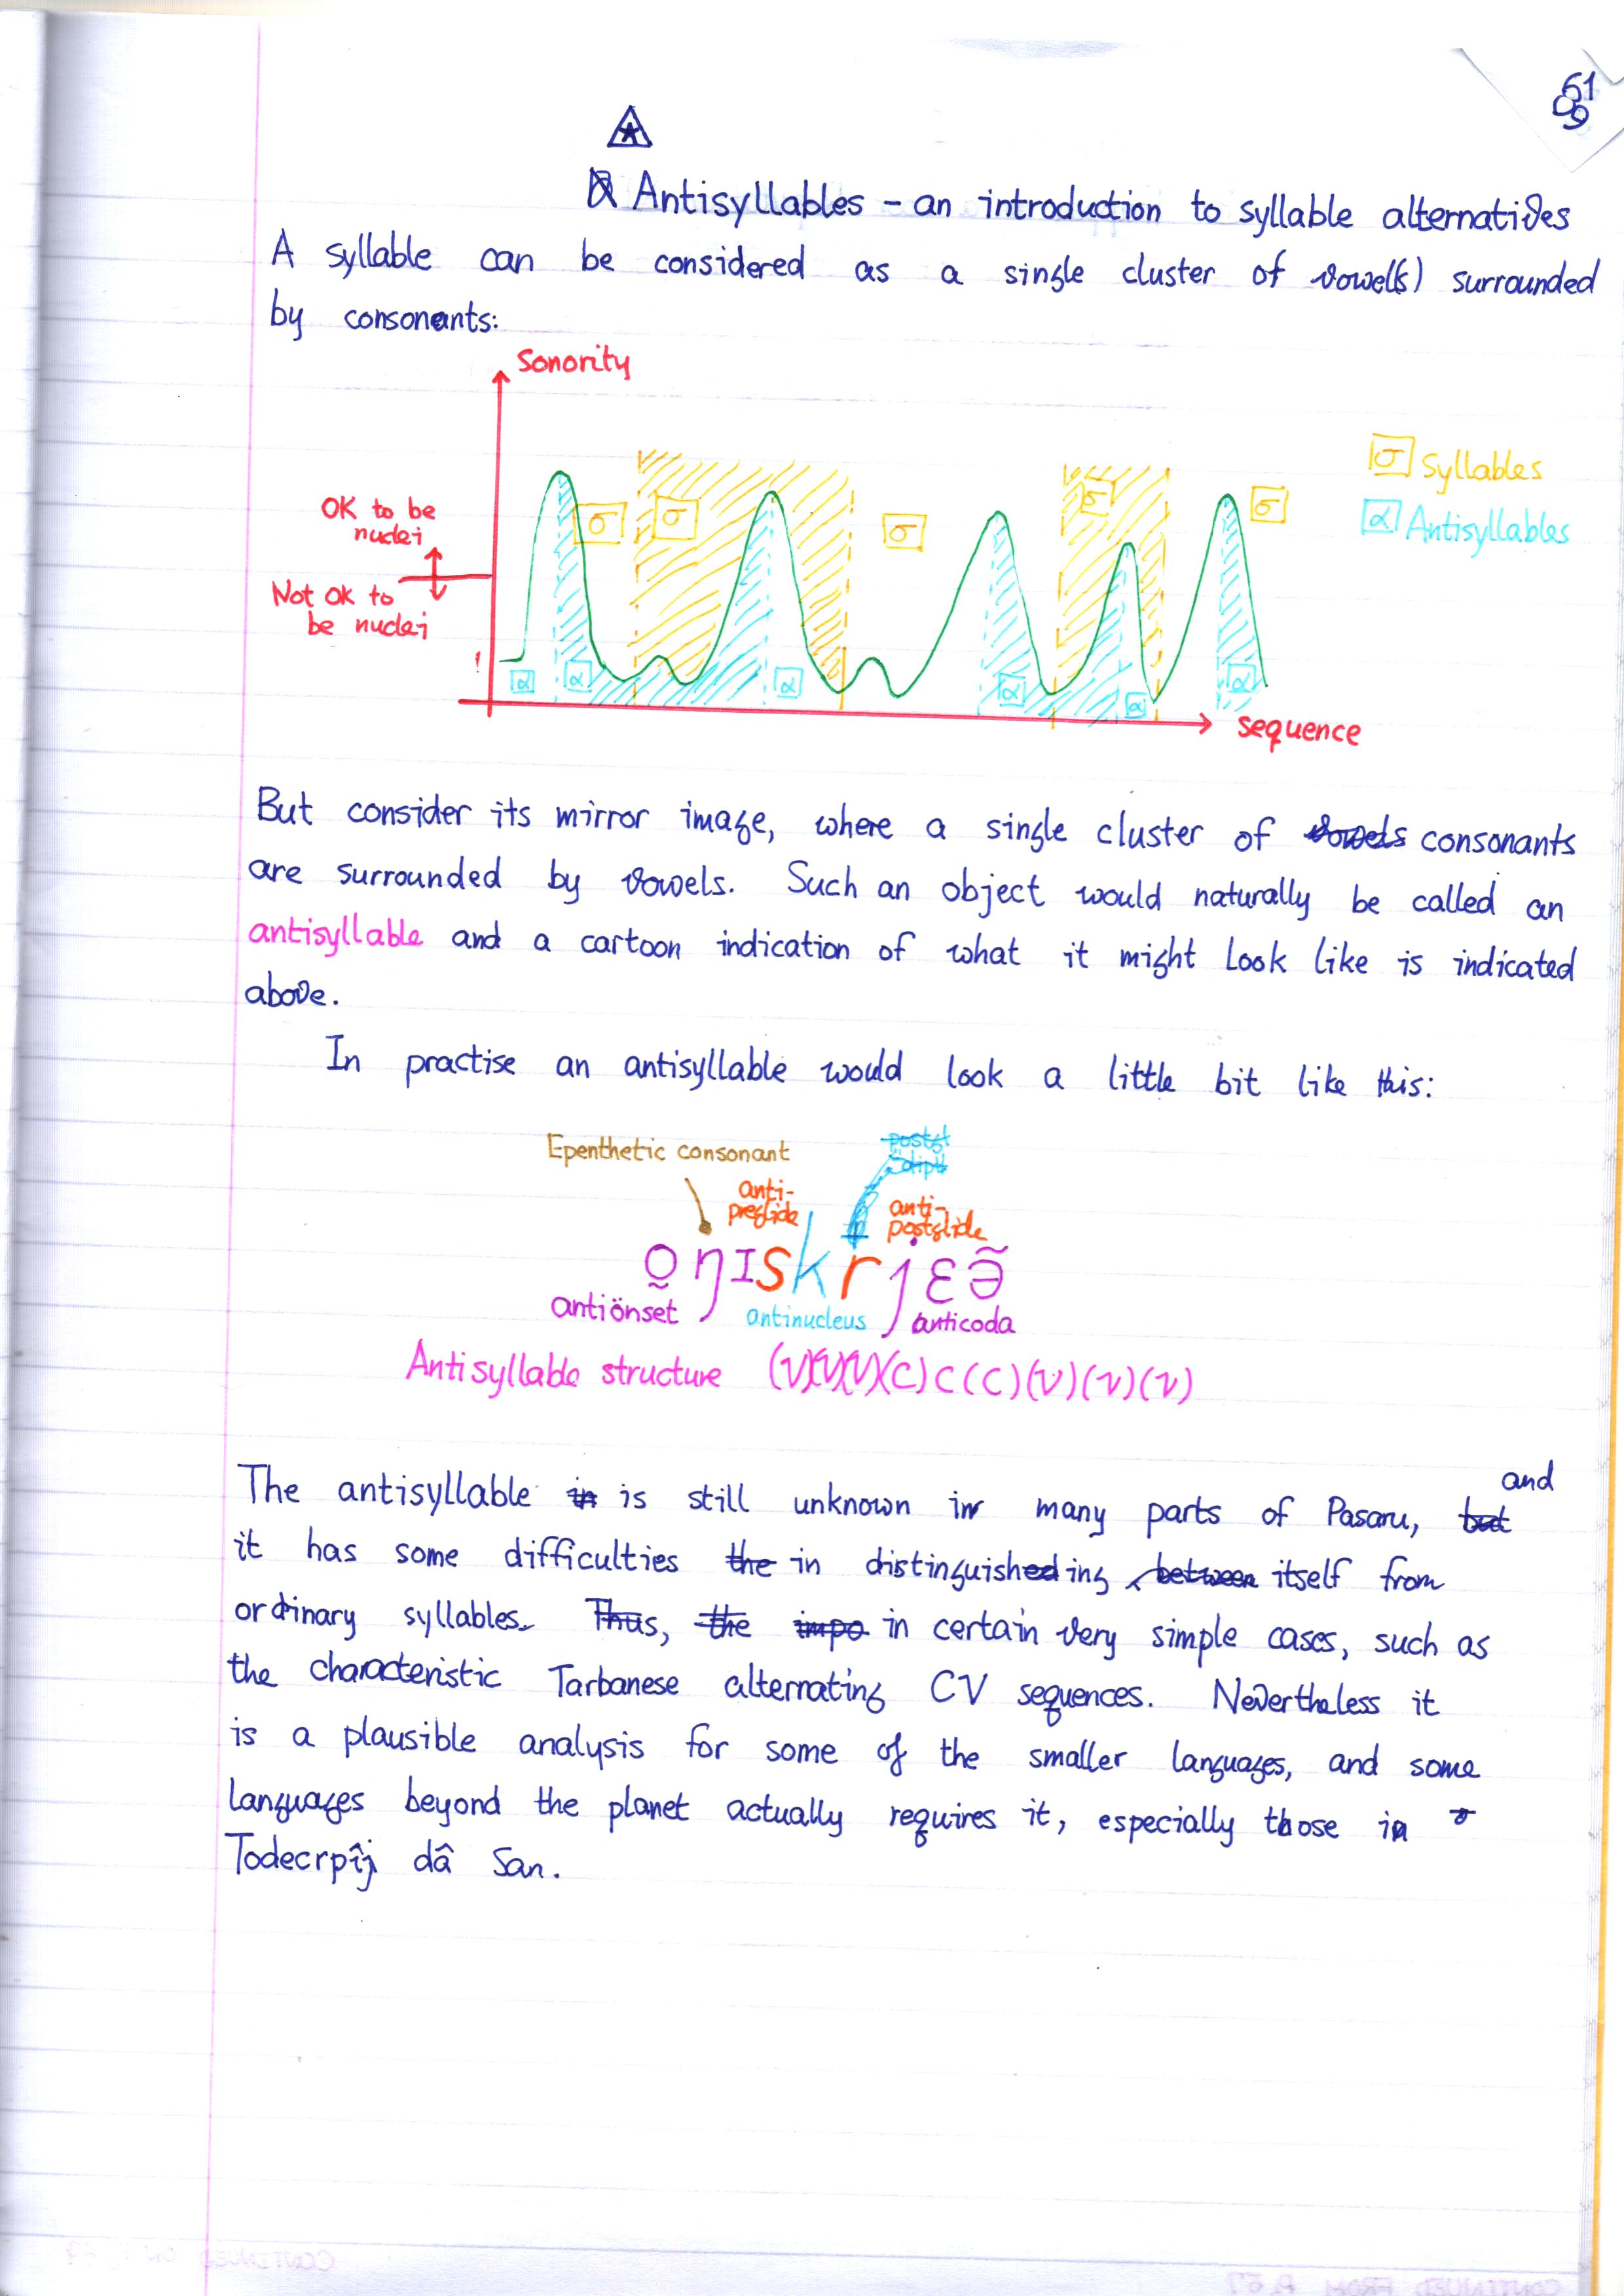 61
09
Antisyllables - an introduction to syllable alternatives
A syllable can be considered as a single cluster of vowel(s) surrounded
by consonants:
Sonority
OK to be
nuclei
Not OK to
be nuclei
σ σ σ σ σ
σ Syllables
α Antisyllables
α α α α α α
sequence
But consider its mirror image, where a single cluster of vowels consonants
are surrounded by vowels. Such an object would naturally be called an
antisyllable and a cartoon indication of what it might look like is indicated
above.
In practise an antisyllable would look a little bit like this:
Epenthetic consonant
anti-
preglide
anti-
postglide
o̰ŋɪskrjɛə̃
antiönset
antinucleus
anticoda
Antisyllable structure (V)(V)(V)(C)C(C)(V)(V)(V)
The antisyllable in is still unknown in many parts of Pasaru, but and
it has some difficulties the in distinguisheding between itself from
ordinary syllables. Thus, the impo in certain very simple cases, such as
the characteristic Tarbanese alternating CV sequences. Nevertheless it
is a plausible analysis for some of the smaller languages, and some
languages beyond the planet actually requires it, especially those in
Todecrpîj dâ San.